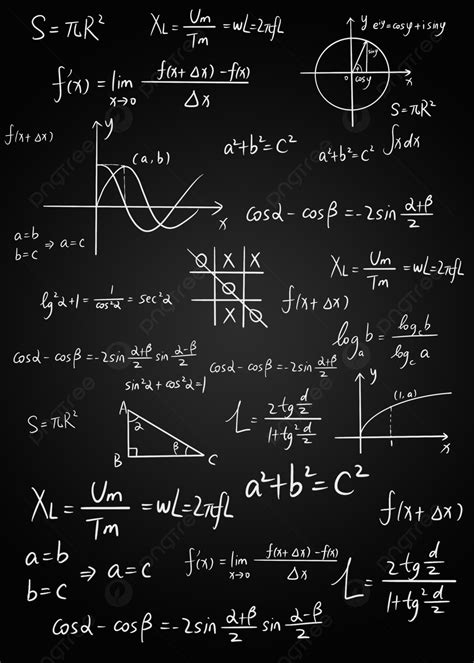 S=πR²
X_L = U_m/T_m = wL=2πfL
y
e^iy=cosy+i siny
siny
o
cosy
x
f'(x) = lim x→0 f(x+Δx)-f(x)/Δx
S=πR²
f(x+Δx)
y
(a,b)
x
a²+b²=C²
a²+b²=C²
∫xdx
cosα-cosβ=-2sin α+β/2
a=b
b=c ⇒ a=c
O X X
O
X O
X_L = U_m/T_m = wL=2πfL
lg²α+1 = 1/cos²α = sec²α
f(x+Δx)
log_a b = log_c b/log_c a
cosα-cosβ=-2sin α+β/2 sin α-β/2
cosα-cosβ=-2sin α+β/2
sin²α+cos²α=1
y
(1,a)
1
x
S=πR²
A
2
B
β
C
L = 2tg d/2 / 1+tg² d/2
X_L = U_m/T_m = wL=2πfL
a²+b²=C²
f(x+Δx)
a=b
b=c ⇒ a=c
f'(x) = lim x→0 f(x+Δx)-f(x)/Δx
L = 2tg d/2 / 1+tg² d/2
cosα-cosβ=-2sin α+β/2 sin α-β/2
pngtree